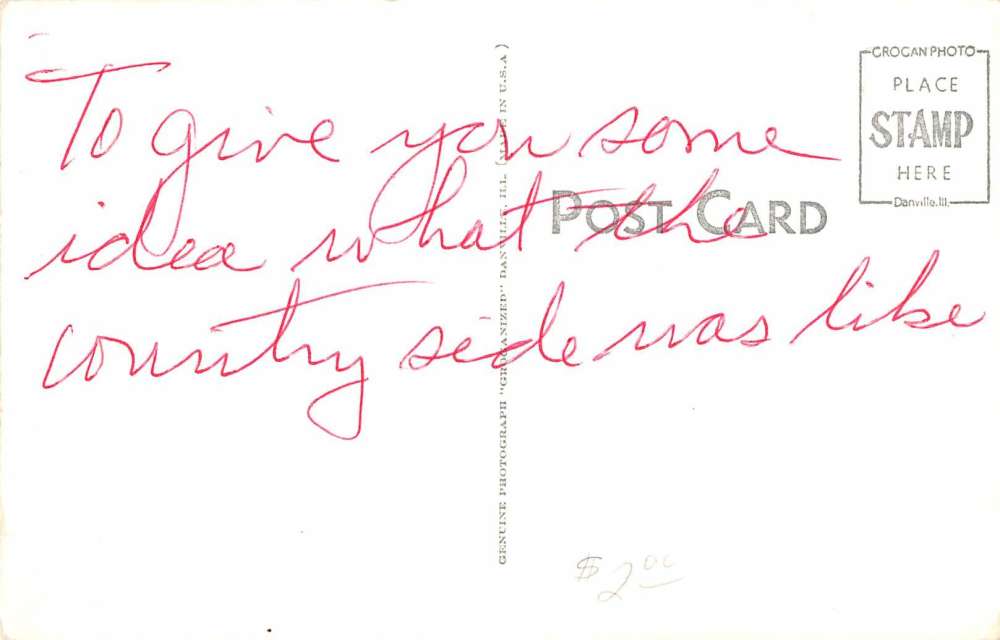 To give you some
idea what the
country side was like
POST CARD
GROGAN PHOTO
PLACE
STAMP
HERE
Danville, Ill.
GENUINE PHOTOGRAPH "GROGANIZED" DANVILLE, ILL. (MADE IN U.S.A.)
$2.00